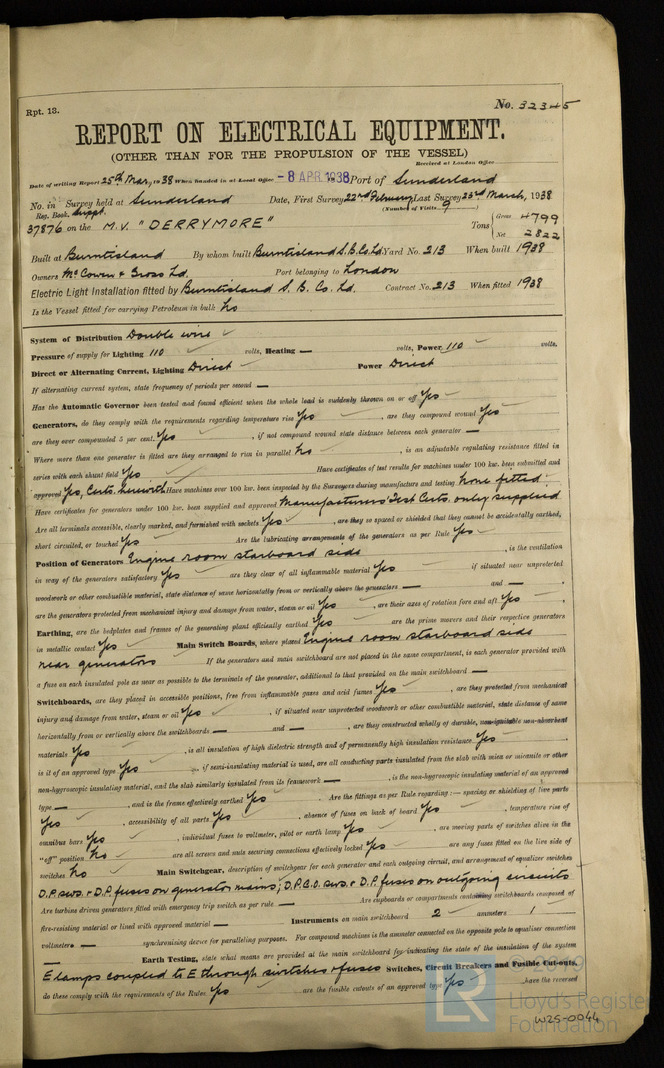 Rpt. 13.
No. 32345
REPORT ON ELECTRICAL EQUIPMENT.
(OTHER THAN FOR THE PROPULSION OF THE VESSEL)
Received at London Office
Date of writing Report 25th Mar, 1938 When handed in at Local Office - 8 APR 1938 Port of Sunderland
No. in Survey held at Sunderland Date, First Survey 22nd February Last Survey 23rd March, 1938
Reg. Book. Suppt. (Number of Visits 9)
37876 on the M.V. "DERRYMORE" Tons { Gross 4799
Net 2822
Built at Burntisland By whom built Burntisland S.B. Co. Ld Yard No. 213 When built 1938
Owners McCowen & Gross Ld. Port belonging to London
Electric Light Installation fitted by Burntisland S.B. Co. Ld. Contract No. 213 When fitted 1938
Is the Vessel fitted for carrying Petroleum in bulk No
System of Distribution Double wire ✓
Pressure of supply for Lighting 110 volts, Heating — volts, Power 110 volts.
Direct or Alternating Current, Lighting Direct Power Direct
If alternating current system, state frequency of periods per second —
Has the Automatic Governor been tested and found efficient when the whole load is suddenly thrown on or off Yes
Generators, do they comply with the requirements regarding temperature rise Yes, are they compound wound Yes
are they over compounded 5 per cent. Yes, if not compound wound state distance between each generator —
Where more than one generator is fitted are they arranged to run in parallel No, is an adjustable regulating resistance fitted in
series with each shunt field Yes Have certificates of test results for machines under 100 kw. been submitted and
approved Yes, Certs. herewith Have machines over 100 kw. been inspected by the Surveyors during manufacture and testing None fitted.
Have certificates for generators under 100 kw. been supplied and approved Manufacturers' Test Certs. only supplied
Are all terminals accessible, clearly marked, and furnished with sockets Yes, are they so spaced or shielded that they cannot be accidentally earthed,
short circuited, or touched Yes Are the lubricating arrangements of the generators as per Rule Yes
Position of Generators Engine room starboard side, is the ventilation
in way of the generators satisfactory Yes are they clear of all inflammable material Yes if situated near unprotected
woodwork or other combustible material, state distance of same horizontally from or vertically above the generators — and —,
are the generators protected from mechanical injury and damage from water, steam or oil Yes, are their axes of rotation fore and aft Yes
Earthing, are the bedplates and frames of the generating plant efficiently earthed Yes are the prime movers and their respective generators
in metallic contact Yes Main Switch Boards, where placed Engine room starboard side
near generators If the generators and main switchboard are not placed in the same compartment, is each generator provided with
a fuse on each insulated pole as near as possible to the terminals of the generator, additional to that provided on the main switchboard —
Switchboards, are they placed in accessible positions, free from inflammable gases and acid fumes Yes, are they protected from mechanical
injury and damage from water, steam or oil Yes, if situated near unprotected woodwork or other combustible material, state distance of same
horizontally from or vertically above the switchboards — and —, are they constructed wholly of durable, non-ignitable non-absorbent
materials Yes, is all insulation of high dielectric strength and of permanently high insulation resistance Yes
is it of an approved type Yes, if semi-insulating material is used, are all conducting parts insulated from the slab with mica or micanite or other
non-hygroscopic insulating material, and the slab similarly insulated from its framework —, is the non-hygroscopic insulating material of an approved
type —, and is the frame effectively earthed Yes Are the fittings as per Rule regarding :— spacing or shielding of live parts
Yes, accessibility of all parts Yes, absence of fuses on back of board Yes, temperature rise of
omnibus bars Yes, individual fuses to voltmeter, pilot or earth lamp Yes, are moving parts of switches alive in the
"off" position No are all screws and nuts securing connections effectively locked Yes are any fuses fitted on the live side of
switches No Main Switchgear, description of switchgear for each generator and each outgoing circuit, and arrangement of equalizer switches
D.P. sws. & D.P. fuses on generator mains; D.P.C.O. sws. & D.P. fuses on outgoing circuits
Are turbine driven generators fitted with emergency trip switch as per rule — Are cupboards or compartments containing switchboards composed of
fire-resisting material or lined with approved material — Instruments on main switchboard 2 ammeters 1
voltmeters — synchronising device for paralleling purposes. For compound machines is the ammeter connected on the opposite pole to equaliser connection
— Earth Testing, state what means are provided at the main switchboard for indicating the state of the insulation of the system
E lamps coupled to E through switches & fuses Switches, Circuit Breakers and Fusible Cut-outs,
do these comply with the requirements of the Rules Yes are the fusible cutouts of an approved type Yes have the reversed
© 2019
LR
Lloyd's Register
Foundation
W25-0044